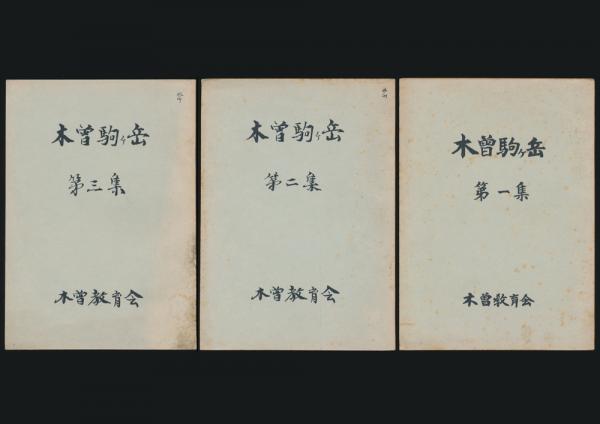 木曽駒ヶ岳
第三集
木曽教育会
木曽駒ヶ岳
第二集
木曽教育会
木曽駒ヶ岳
第一集
木曽教育会